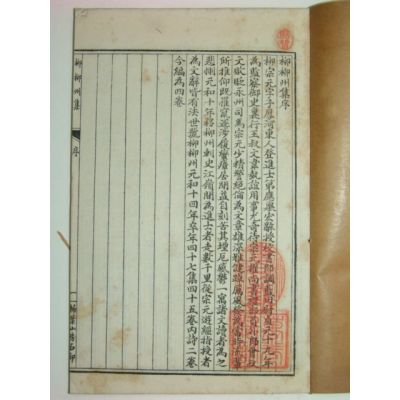 柳柳州集序
柳宗元字子厚河東人登進士第應舉宏辭授校書郎調藍田尉貞元十九年
為監察御史裏行王叔文韋執誼用事尤奇待宗元擢尚書禮部員外郎會叔
文敗貶永州司馬宗元少精警絕倫為文章雄深雅健踔厲風發為當時流輩
所推仰既罹竄逐涉履蠻瘴居閒益自刻苦其堙厄感鬱一寓諸文讀者為之
悲惻元和十年移柳州刺史江嶺間為進士者走數千里從宗元遊經指授者
為文辭皆有法世號柳柳州元和十四年卒年四十七集四十五卷內詩二卷
今編為四卷
柳柳州集
序
一
掃葉山房石印